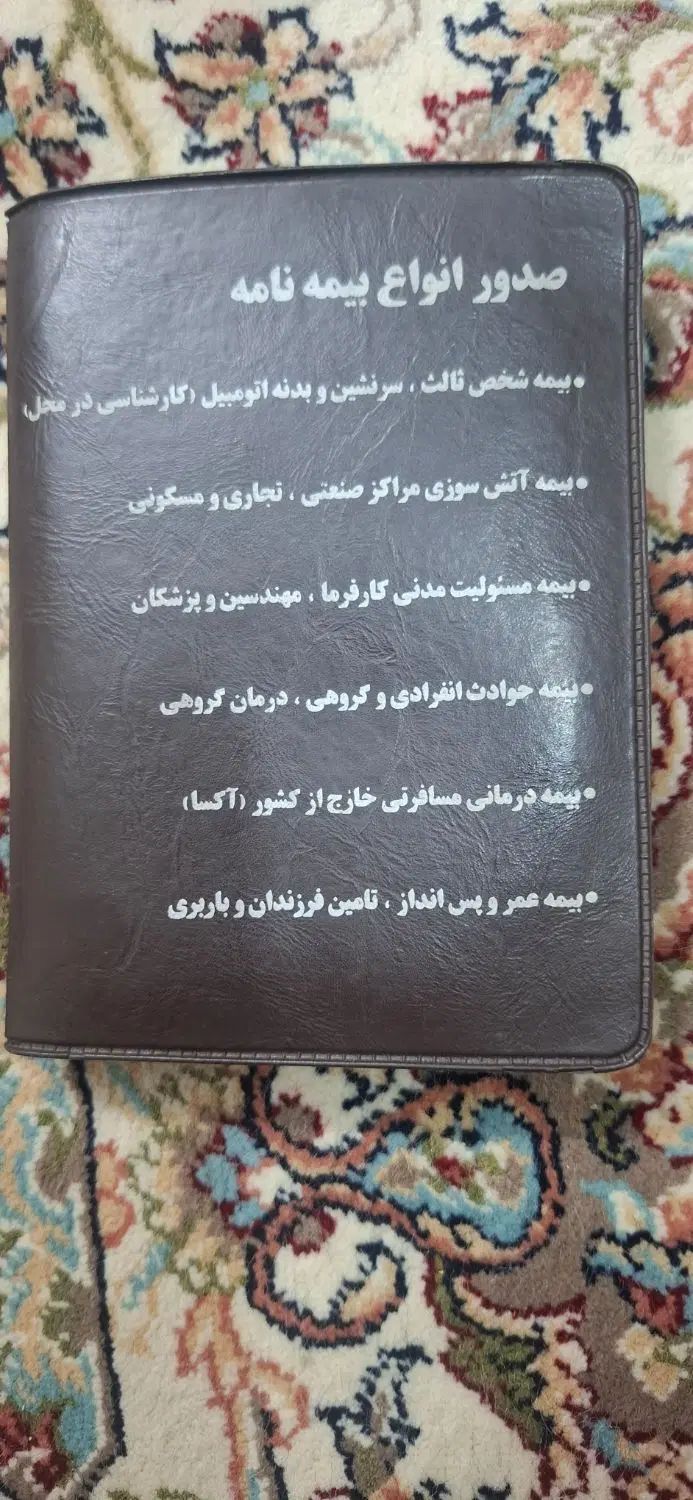 صدور انواع بیمه نامه
•بیمه شخص ثالث ، سرنشین و بدنه اتومبیل (کارشناسی در محل)
•بیمه آتش سوزی مراکز صنعتی ، تجاری و مسکونی
•بیمه مسئولیت مدنی کارفرما ، مهندسین و پزشکان
•بیمه حوادث انفرادی و گروهی ، درمان گروهی
•بیمه درمانی مسافرتی خارج از کشور (آکسا)
•بیمه عمر و پس انداز ، تامین فرزندان و باربری